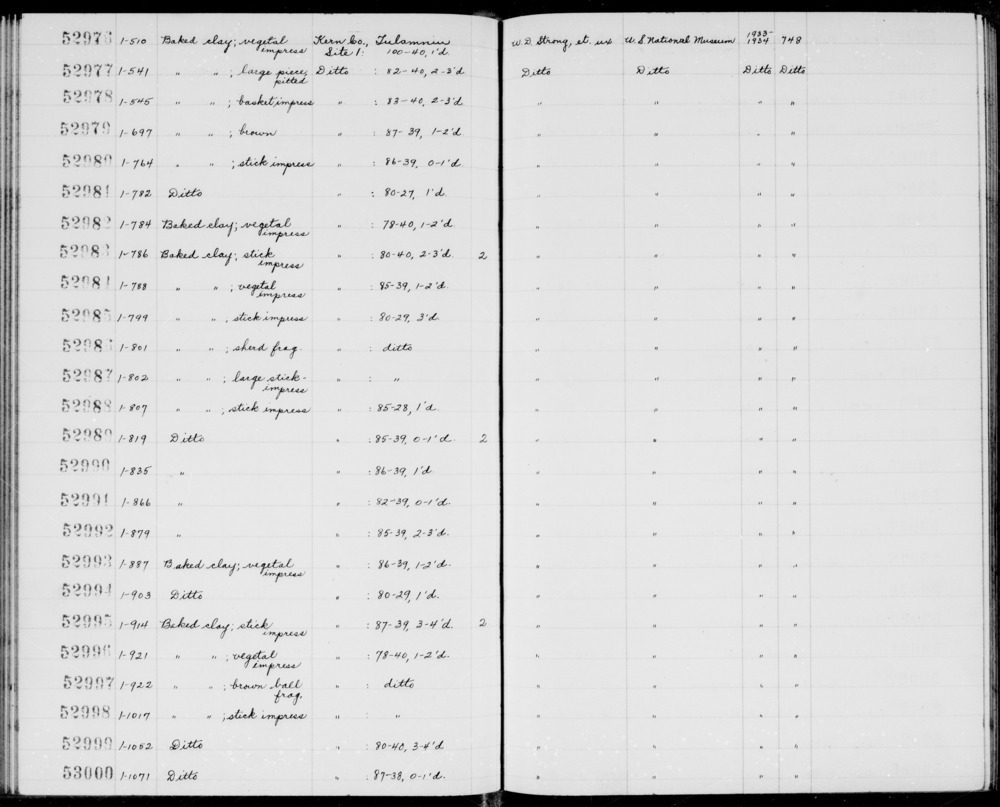 52976 1-510 Baked clay; vegetal impress Kern Co., Tulamniu Site 1: 100-40, 1'd. W. D. Strong, et ux U. S National Museum 1933-1934 748
52977 1-541 " " ; large piece, pitted Ditto : 82-40, 2-3'd Ditto Ditto Ditto Ditto
52978 1-545 " " ; basket impress " : 83-40, 2-3'd " " " "
52979 1-697 " " ; brown " : 87-39, 1-2'd " " " "
52980 1-764 " " ; stick impress " : 86-39, 0-1'd " " " "
52981 1-782 Ditto " : 80-27, 1'd " " " "
52982 1-784 Baked clay; vegetal impress " : 78-40, 1-2'd " " " "
52983 1-786 Baked clay; stick impress " : 80-40, 2-3'd 2 " " " "
52984 1-788 " " ; vegetal impress " : 85-39, 1-2'd " " " "
52985 1-799 " " , stick impress " : 80-29, 3'd " " " "
52986 1-801 " " ; sherd frag. " : ditto " " " "
52987 1-802 " " ; large stick-impress " : " " " " "
52988 1-807 " " ; stick impress " : 85-28, 1'd. " " " "
52989 1-819 Ditto " : 85-39, 0-1'd. 2 " " " "
52990 1-835 " " : 86-39, 1'd " " " "
52991 1-866 " " : 82-39, 0-1'd. " " " "
52992 1-879 " " : 85-39, 2-3'd. " " " "
52993 1-887 Baked clay; vegetal impress " : 86-39, 1-2'd. " " " "
52994 1-903 Ditto " : 80-29, 1'd. " " " "
52995 1-914 Baked clay; stick impress " : 87-39, 3-4'd. 2 " " " "
52996 1-921 " " ; vegetal impress " : 78-40, 1-2'd. " " " "
52997 1-922 " " ; brown ball frag. " : ditto " " " "
52998 1-1017 " " ; stick impress " : " " " " "
52999 1-1052 Ditto " : 80-40, 3-4'd " " " "
53000 1-1071 Ditto " : 87-38, 0-1'd. " " " "